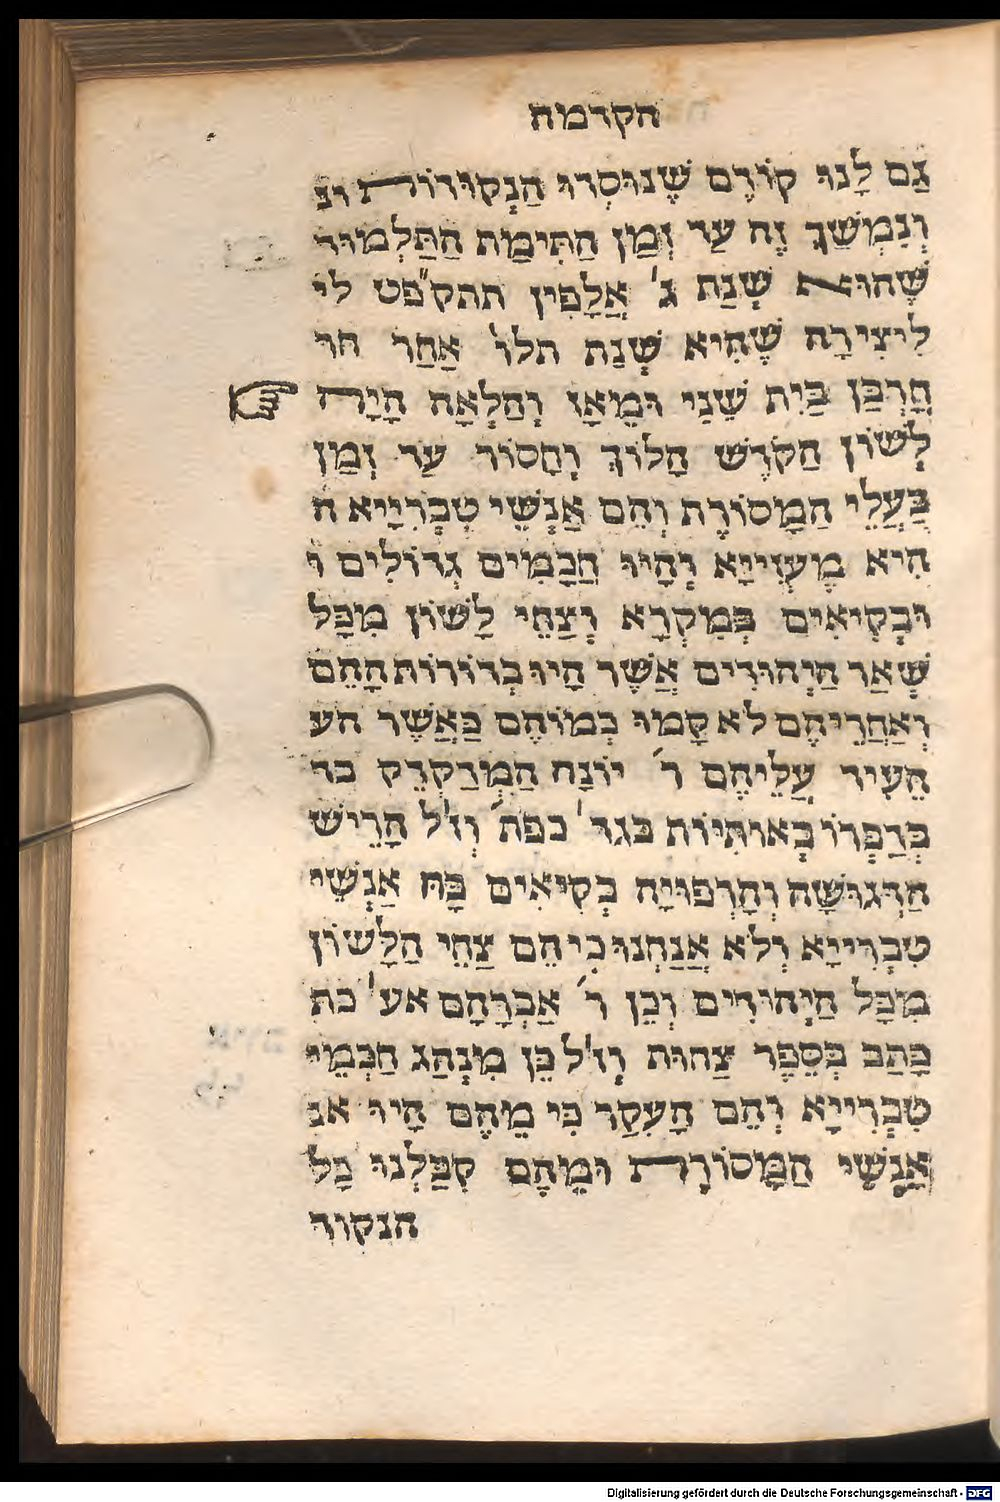 הקדמה
גַם לָנוּ קוֹדֶם שֶׁנוּסְדוּ הַנְקוּדוֹת ונ
וְנִמְשַׁךְ זֶה עַד זְמַן חַתִּימַת הַתַּלְמוּד
שֶׁהוּא שְׁנַת ג' אֲלָפִין תתקׄפט לי
לִיצִירָה שֶׁהִיא שְׁנַת תלו אַחַר חר
חָרְבַּן בַּיִת שֵׁנִי וּמֵאָז וְהַלְאָה הָיָה
לְשׁוֹן הַקֹדֶשׁ הָלוֹךְ וְחָסוֹר עַד זְמַן
בַּעֲלֵי הַמָסוֹרֶת וְהֵם אַנְשֵׁי טְבֶרְיָיא ה
הִיא מֶעְזִייָא וְהָיוּ חֲכָמִים גְדוֹלִים ו
וּבְקִיאִים בְּמִקְרָא וְצַחֵי לָשׁוֹן מִכָּל
שְׁאַר הַיְהוּדִים אֲשֶׁר הָיוּ בְדוֹרוֹת הָהֵם
וְאַחֲרֵיהֶם לא קָמוּ כְמוֹהֶם כַּאֲשֶׁר הע
הֵעִיד עֲלֵיהֶם ר' יוֹנָה הַמְדַקְדֵק בד
בְּדַבְּרוֹ בְאוֹתִיּוֹת בגד' כפת' וְז'ל הָרֵישׁ
הַדְגוּשָׁה וְהָרְפוּיָה בְקִיאִים בָּהּ אַנְשֵׁי
טִבֶרִייָא וְלֹא אֲנַחְנוּ כִי הֵם צַחֵי הַלָשׁוֹן
מִכָּל הַיְהוּדִים וְכֵן ר' אַבְרָהָם אע' כת
כָּתַב בְּסֵפֶר צַחוּת וְז'ל כֵּן מִנְהַג חַכְמֵי
טִבֶרִייָא וְהֵם הָעִקָר כִּי מֵהֶם הָיוּ אנ
אַנְשֵׁי הַמָּסוֹרֶת וּמֵהֶם קִבַּלְנוּ כָל
הנקוד
Digitalisierung gefördert durch die Deutsche Forschungsgemeinschaft - DFG